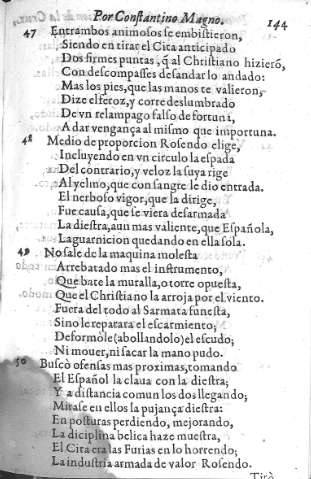 Por Constantino Magno. 144
47 Entrambos animosos se embistieron,
Siendo en tirar el Cita anticipado
Dos firmes puntas, q̃ al Christiano hizierõ,
Con descompasses desandar lo andado:
Mas los pies, que las manos te valieron,
Dize el feroz, y corre deslumbrado
De vn relampago falso de fortuna,
A dar vengança al mismo que importuna.
48 Medio de proporcion Rosendo elige,
Incluyendo en vn circulo la espada
Del contrario, y veloz la suya rige
Al yelmo, que con sangre le dio entrada.
El nerboso vigor, que la dirige,
Fue causa, que se viera desarmada
La diestra, aun mas valiente, que Española,
La guarnicion quedando en ella sola.
49 No sale de la maquina molesta
Arrebatado mas el instrumento,
Que bate la muralla, o torre opuesta,
Que el Christiano la arroja por el viento.
Fuera del todo al Sarmata funesta,
Sino le reparara el escarmiento;
Deformòle (abollandolo) el escudo;
Ni mouer, ni sacar la mano pudo.
50 Buscò ofensas mas proximas, tomando
El Español la claua con la diestra;
Y a distancia comun los dos llegando;
Mirase en ellos la pujança diestra:
En posturas perdiendo, mejorando,
La diciplina belica haze muestra,
El Cita era las Furias en lo horrendo;
La industria armada de valor Rosendo.
Tirò